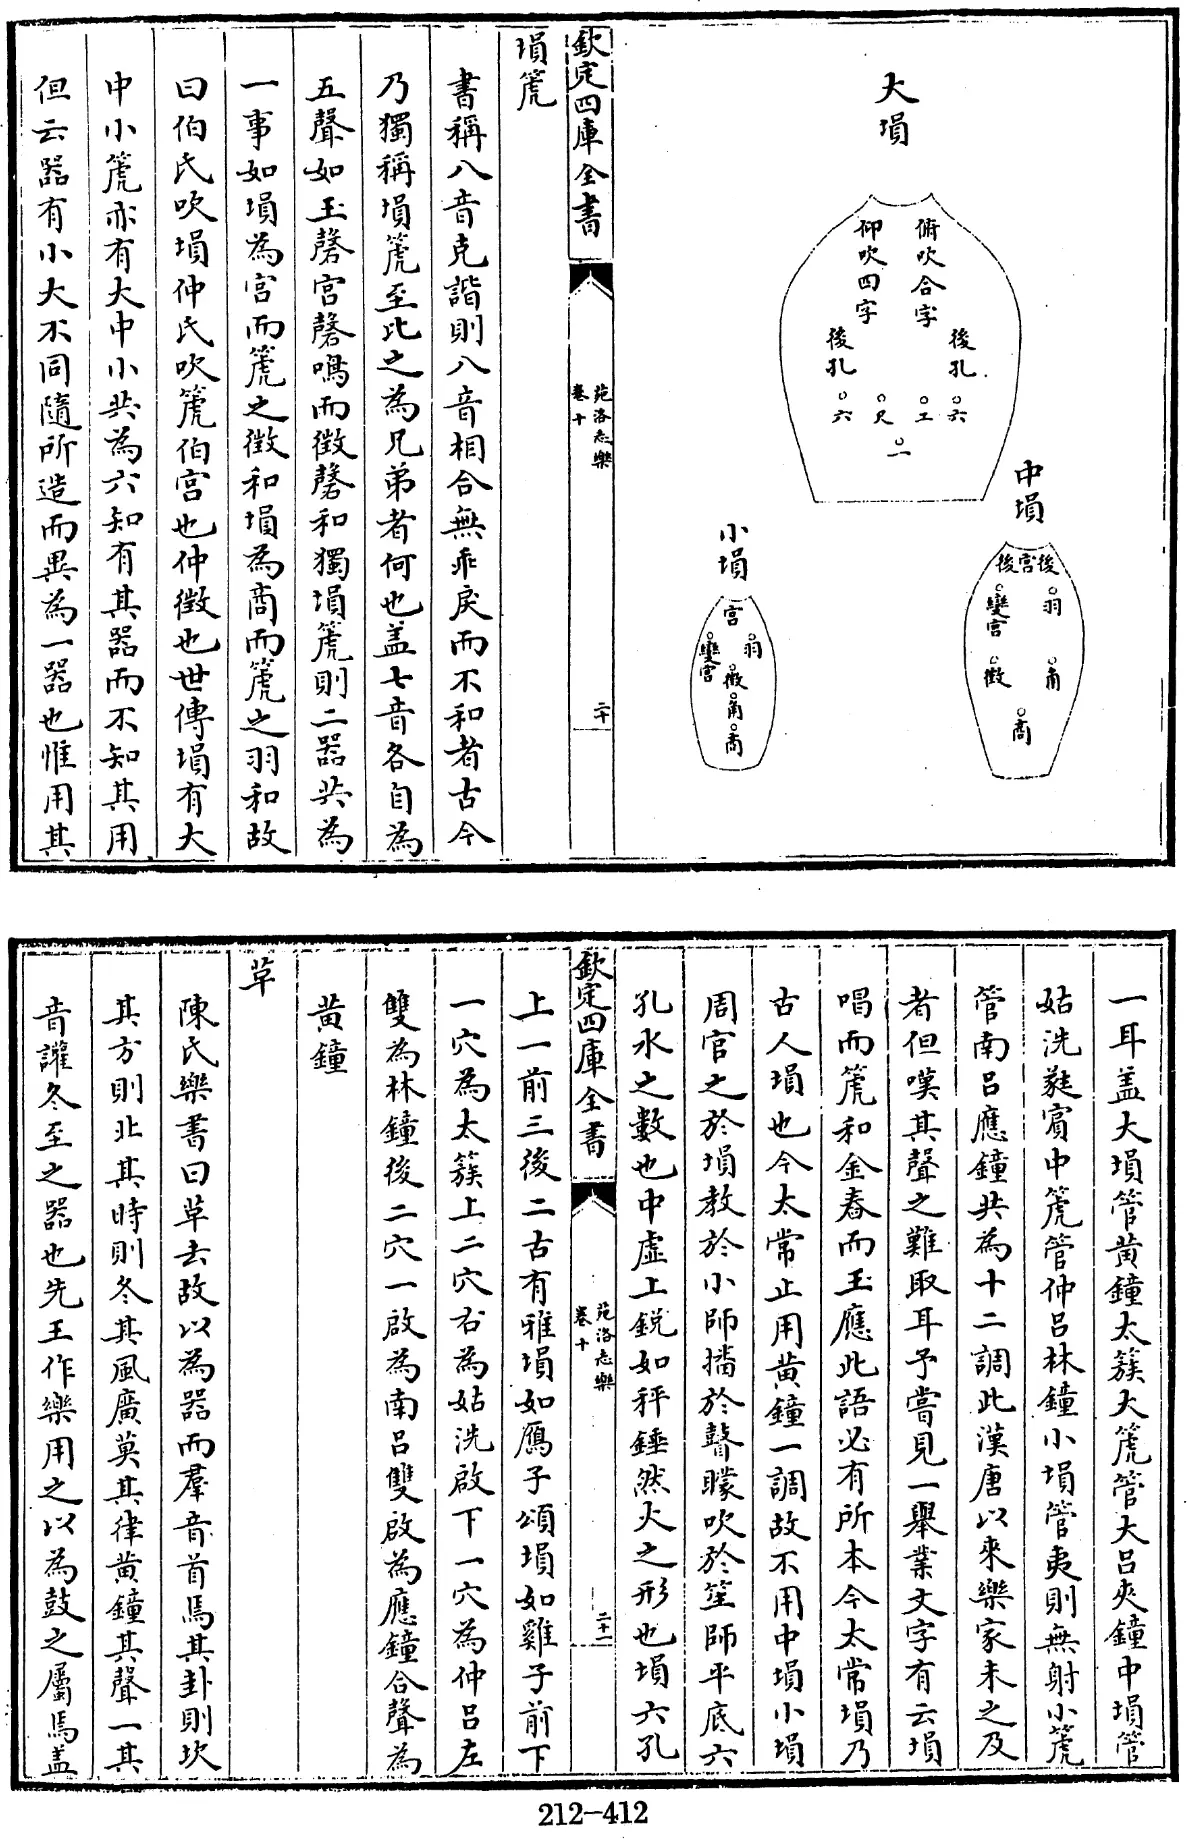 大塤
俯吹合字
仰吹四字
後孔
六
工
一
尺
後孔
六
中塤
後宮後
羽
角
變宮
徵
商
小塤
宮
羽
變宮
徵
角
商
欽定四庫全書
苑洛志樂
卷十
二十
塤篪
書稱八音克諧則八音相合無乖戾而不和者古今
乃獨稱塤篪至比之為兄弟者何也盖七音各自為
五聲如玉磬宮磬鳴而徵磬和獨塤篪則二器共為
一事如塤為宮而篪之徵和塤為商而篪之羽和故
曰伯氏吹塤仲氏吹篪伯宮也仲徵也世傳塤有大
中小篪亦有大中小共為六知有其器而不知其用
但云器有小大不同隨所造而異為一器也惟用其
一耳盖大塤管黄鐘太簇大篪管大吕夾鐘中塤管
姑洗蕤賓中篪管仲吕林鐘小塤管夷則無射小篪
管南吕應鐘共為十二調此漢唐以來樂家未之及
者但嘆其聲之難取耳予嘗見一舉業文字有云塤
唱而篪和金舂而玉應此語必有所本今太常塤乃
古人塤也今太常止用黄鐘一調故不用中塤小塤
周官之於塤教於小師播於瞽矇吹於笙師平底六
孔水之數也中虛上鋭如秤錘然火之形也塤六孔
欽定四庫全書
苑洛志樂
卷十
二十一
上一前三後二古有雅塤如鴈子頌塤如雞子前下
一穴為太簇上二穴右為姑洗啟下一穴為仲吕左
雙為林鐘後二穴一啟為南吕雙啟為應鐘合聲為
黄鐘
草
陳氏樂書曰草去故以為器而羣音首焉其卦則坎
其方則北其時則冬其風廣莫其律黄鐘其聲一其
音讙冬至之器也先王作樂用之以為鼓之屬焉盖
212-412